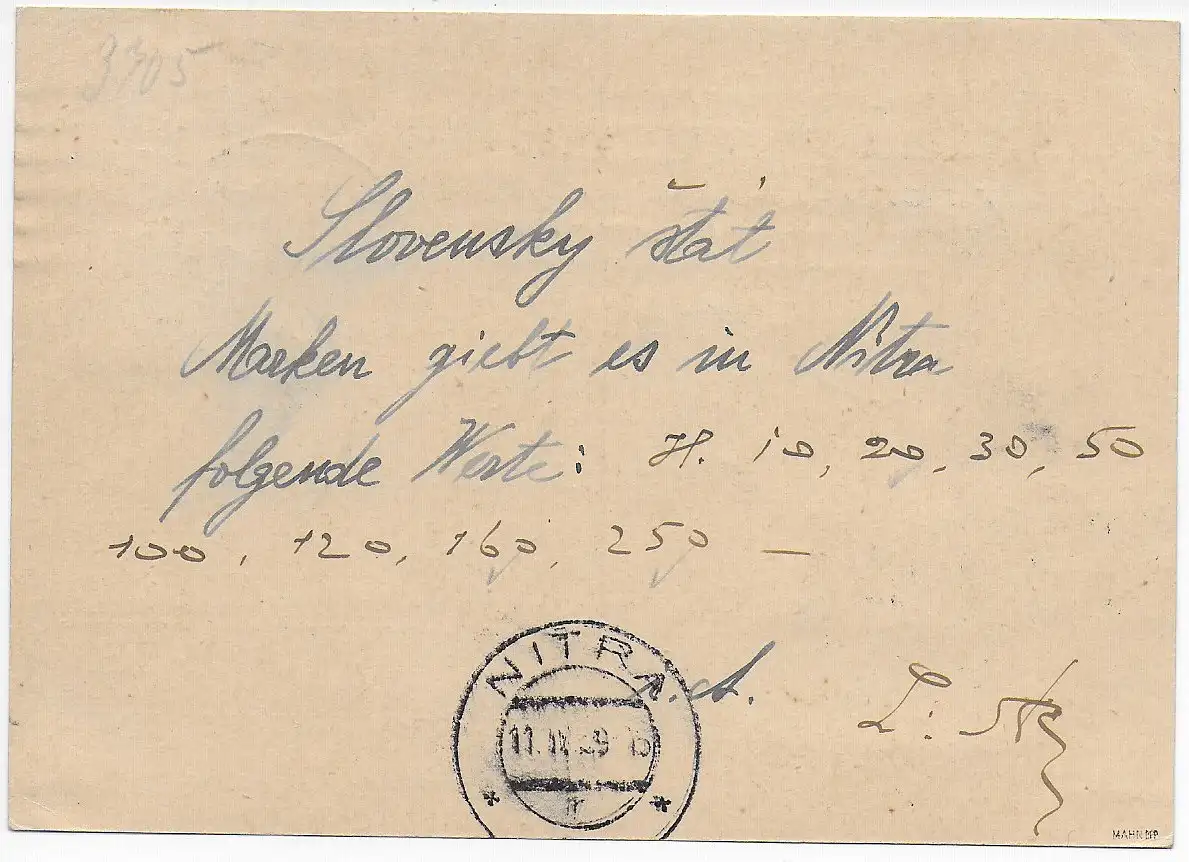 3305
Slovensky štát
Marken giebt es in Nitra
folgende Werte: H. 10, 20, 30, 50
100, 120, 160, 250 —
NITRA
11. IV. 39
L:
MAHN BPP